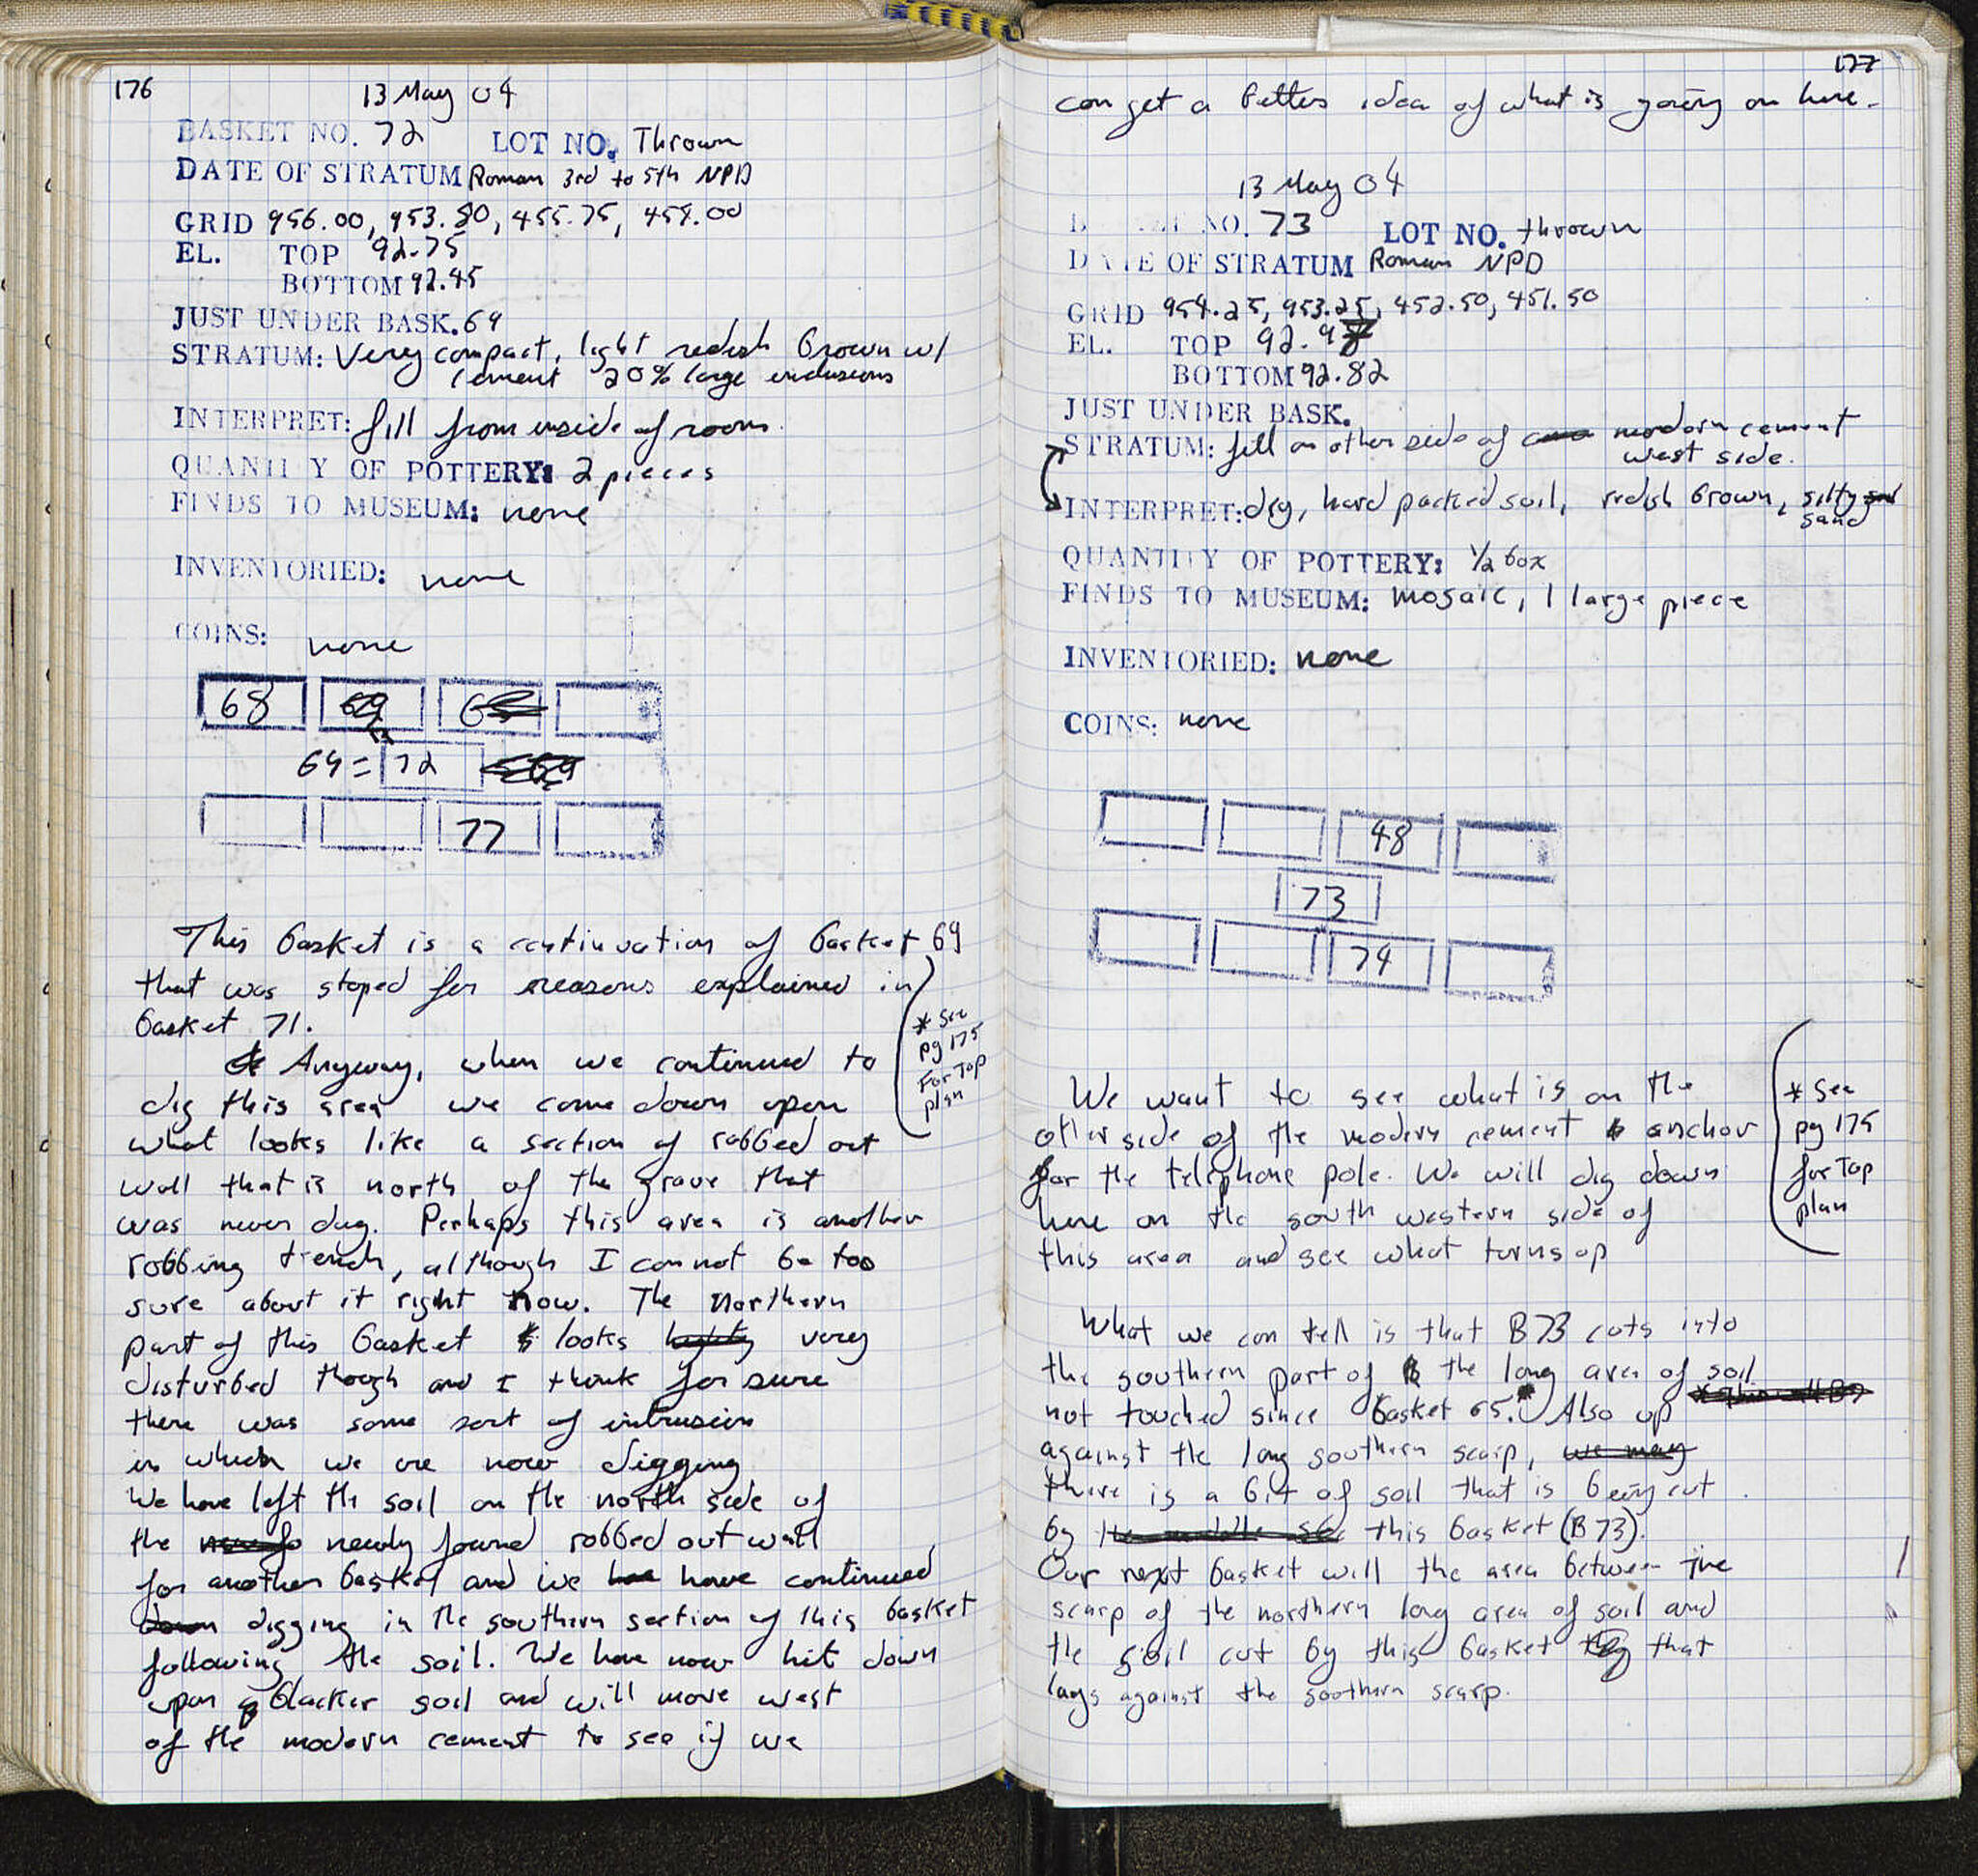 176
13 May 04
BASKET NO. 72 LOT NO. Thrown
DATE OF STRATUM Roman 3rd to 5th NPD
GRID 956.00, 953.80, 455.75, 454.00
EL. TOP 92.75
BOTTOM 92.45
JUST UNDER BASK. 69
STRATUM: Very compact, light redish brown w/
cement 20% large inclusions
INTERPRET: fill from inside of room.
QUANTITY OF POTTERY: 2 pieces
FINDS TO MUSEUM: none
INVENTORIED: none
COINS: none
68 69
69 = 72
77
This basket is a continuation of basket 69
that was stoped for reasons explained in
basket 71.
* See
pg 175
For Top
plan
Anyway, when we continued to
dig this area we come down upon
what looks like a section of robbed out
wall that is north of the grave that
was never dug. Perhaps this area is another
robbing trench, although I cannot be too
sure about it right now. The northern
part of this basket looks very
disturbed though and I think for sure
there was some sort of intrusion
in which we are now digging
We have left the soil on the north side of
the newly found robbed out wall
for another basket and we have continued
digging in the southern section of this basket
following the soil. We have now hit down
upon blacker soil and will move west
of the modern cement to see if we
177
can get a better idea of what is going on here.
13 May 04
BASKET NO. 73 LOT NO. thrown
DATE OF STRATUM Roman NPD
GRID 954.25, 953.25, 452.50, 451.50
EL. TOP 92.9
BOTTOM 92.82
JUST UNDER BASK.
STRATUM: fill on other side of modern cement
west side.
INTERPRET: dry, hard packed soil, redish brown, silty
sand
QUANTITY OF POTTERY: 1/2 box
FINDS TO MUSEUM: mosaic, 1 large piece
INVENTORIED: none
COINS: none
48
73
74
We want to see what is on the
other side of the modern cement anchor
for the telephone pole. We will dig down
here on the south western side of
this area and see what turns up
* See
pg 175
for Top
plan
What we can tell is that B73 cuts into
the southern part of the long area of soil
not touched since basket 65.* Also up
against the long southern scarp, we may
there is a bit of soil that is being cut
by this basket (B73).
Our next basket will the area between the
scarp of the northern long area of soil and
the soil cut by this basket that
lays against the southern scarp.